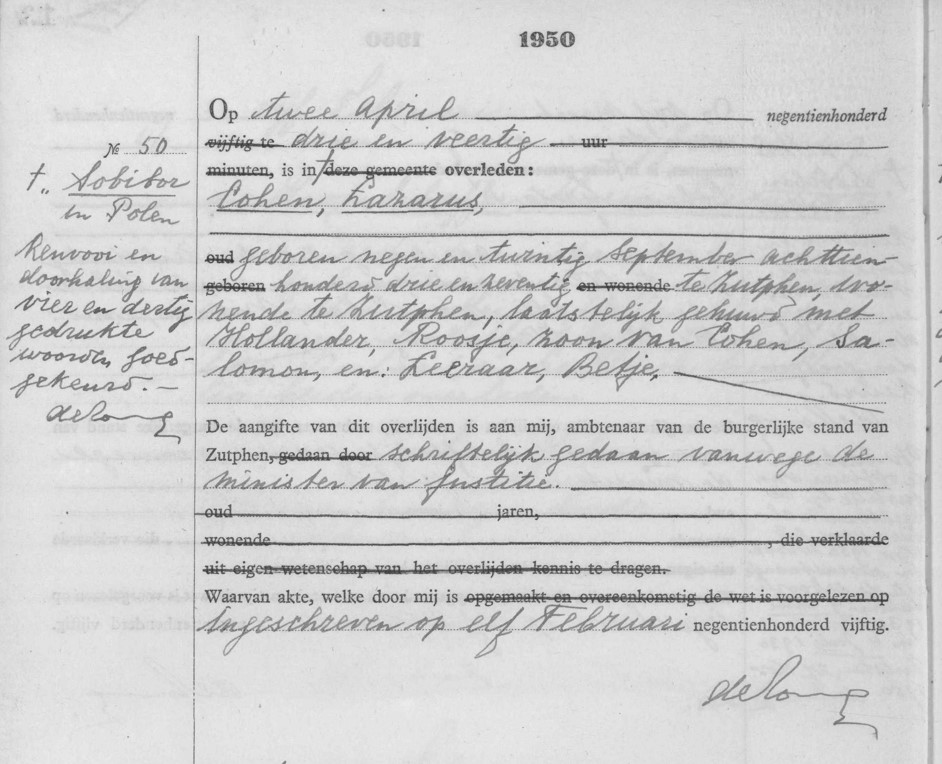 1950
Op twee April negentienhonderd
vijftig te drie en veertig uur
minuten, is in † deze gemeente overleden:
Cohen, Lazarus,
oud geboren negen en twintig September achttien-
geboren honderd drie en zeventig en wonende te Zutphen, wo-
nende te Zutphen, laatstelijk gehuwd met
Hollander, Roosje, zoon van Cohen, Sa-
lomon, en: Leeraar, Betje.
De aangifte van dit overlijden is aan mij, ambtenaar van de burgerlijke stand van
Zutphen, gedaan door schriftelijk gedaan vanwege de
minister van Justitie.
oud jaren,
wonende , die verklaarde
uit eigen wetenschap van het overlijden kennis te dragen.
Waarvan akte, welke door mij is opgemaakt en overeenkomstig de wet is voorgelezen op
Ingeschreven op elf Februari negentienhonderd vijftig.
№ 50
†.. Sobibor
in Polen
Renvooi en
doorhaling van
vier en dertig
gedrukte
woorden goed-
gekeurd.—